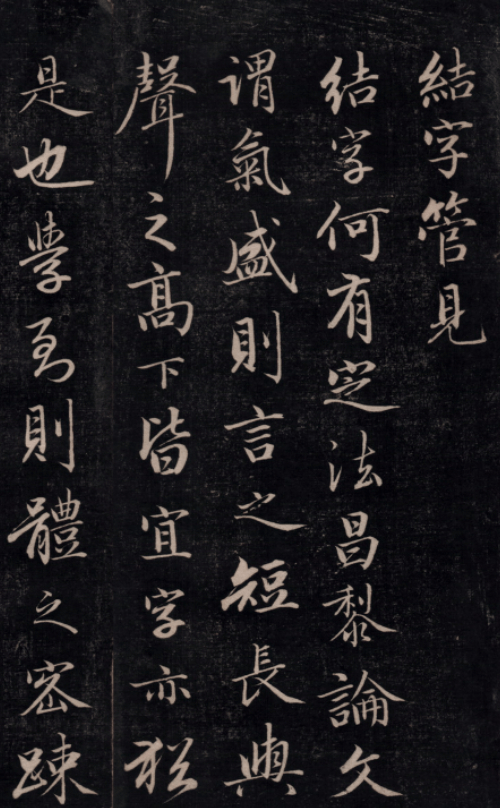 結字管見
結字何有定法昌黎論文
謂氣盛則言之短長與
聲之高下皆宜字亦猶
是也學到則體之密疎